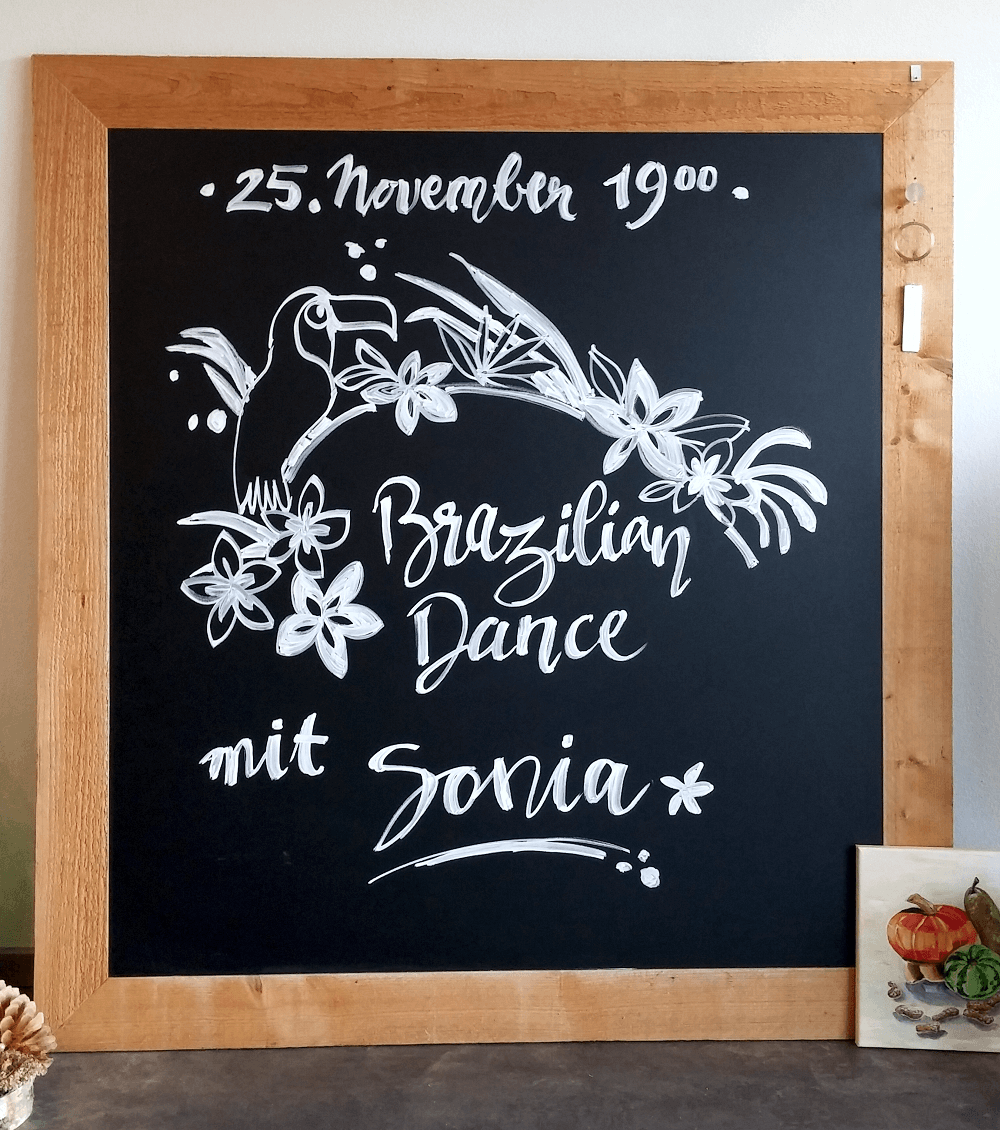 · 25. November 19⁰⁰ ·
Brazilian
Dance
mit Sonia